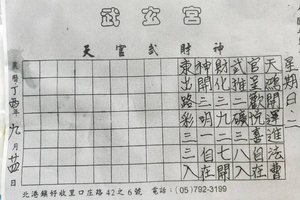 武玄宮
天官武財神
星期日.二
天鴻開渾進法曹
官呈歡喜自在
武推三礦三八入
財化二九二七開
神開三明一自在
東出路彩三二入
農曆丁酉年九月廿四日
北港鎮好收里口庄路42之6號 電話：(05)792-3199